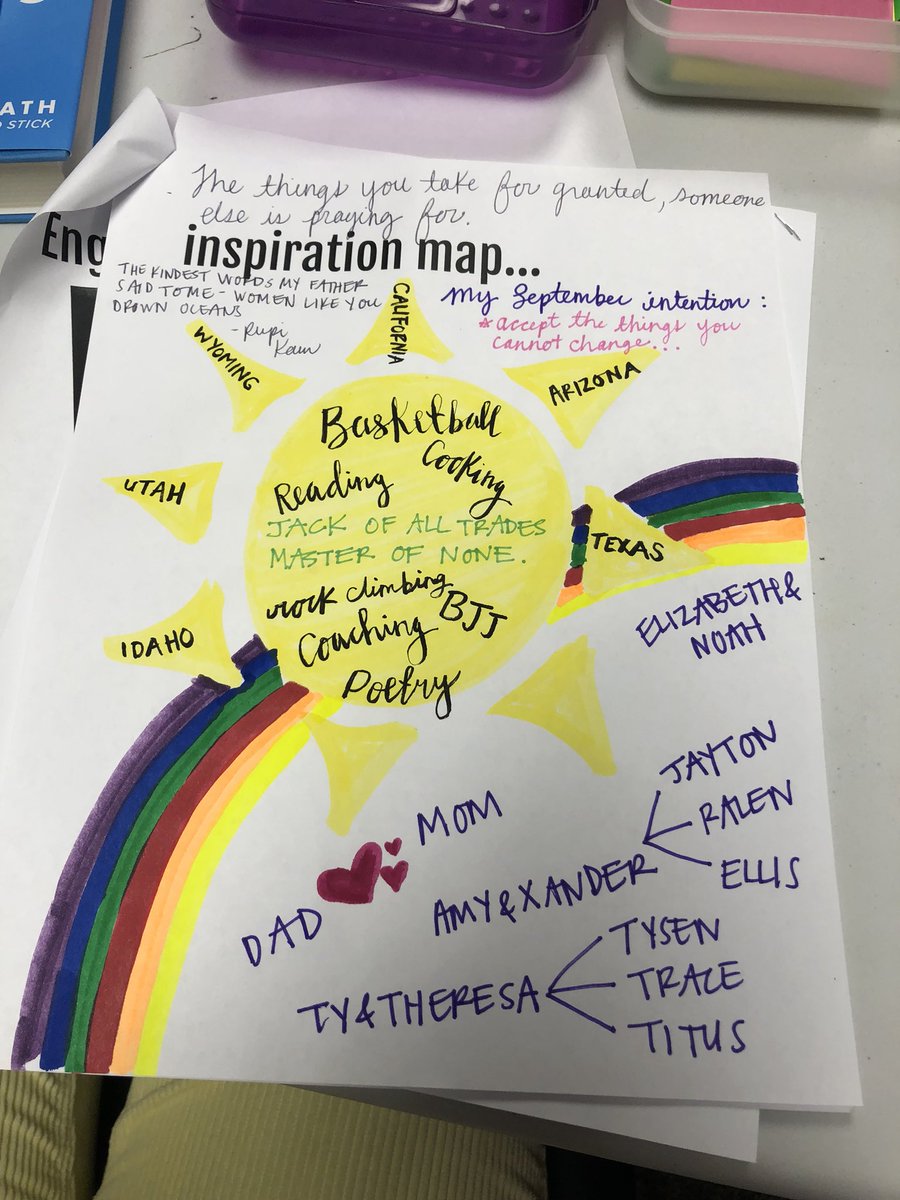 ATH
STICK
The things you take for granted, someone
else is praying for.
Eng
inspiration map...
THE KINDEST WORDS MY FATHER
SAID TO ME - WOMEN LIKE YOU
DROWN OCEANS
- Rupi
Kaur
My September intention:
*accept the things you
cannot change...
CALIFORNIA
WYOMING
ARIZONA
UTAH
TEXAS
IDAHO
Basketball
Cooking
Reading
JACK OF ALL TRADES
MASTER OF NONE.
rock climbing
BJJ
Coaching
Poetry
ELIZABETH &
NOAH
MOM
DAD
AMY & XANDER
JAYTON
RALEN
ELLIS
TY & THERESA
TYSEN
TRACE
TITUS